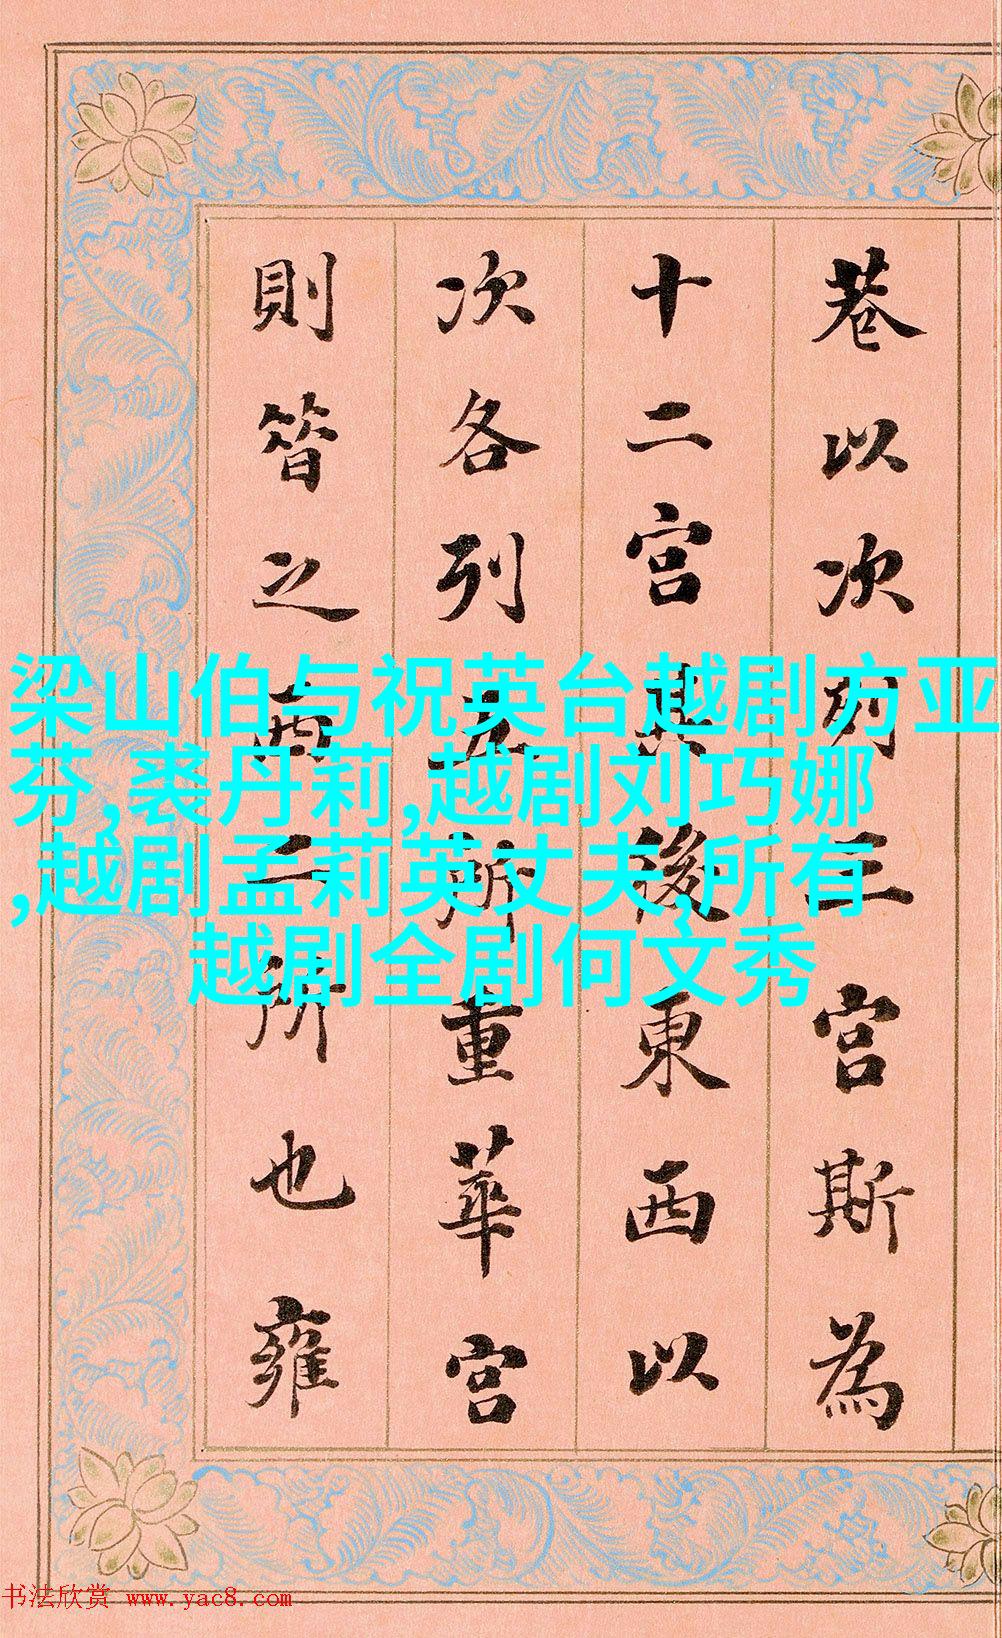 巷以次列三宫斯為
十二宫其後東西以
次各列五所重華宫
則昔之西二所也雍
梁山伯与祝英台越剧方亚
芬,裘丹莉,越剧刘巧娜
,越剧孟莉英丈夫,所有
越剧全剧何文秀
书法欣赏 www.yac8.com